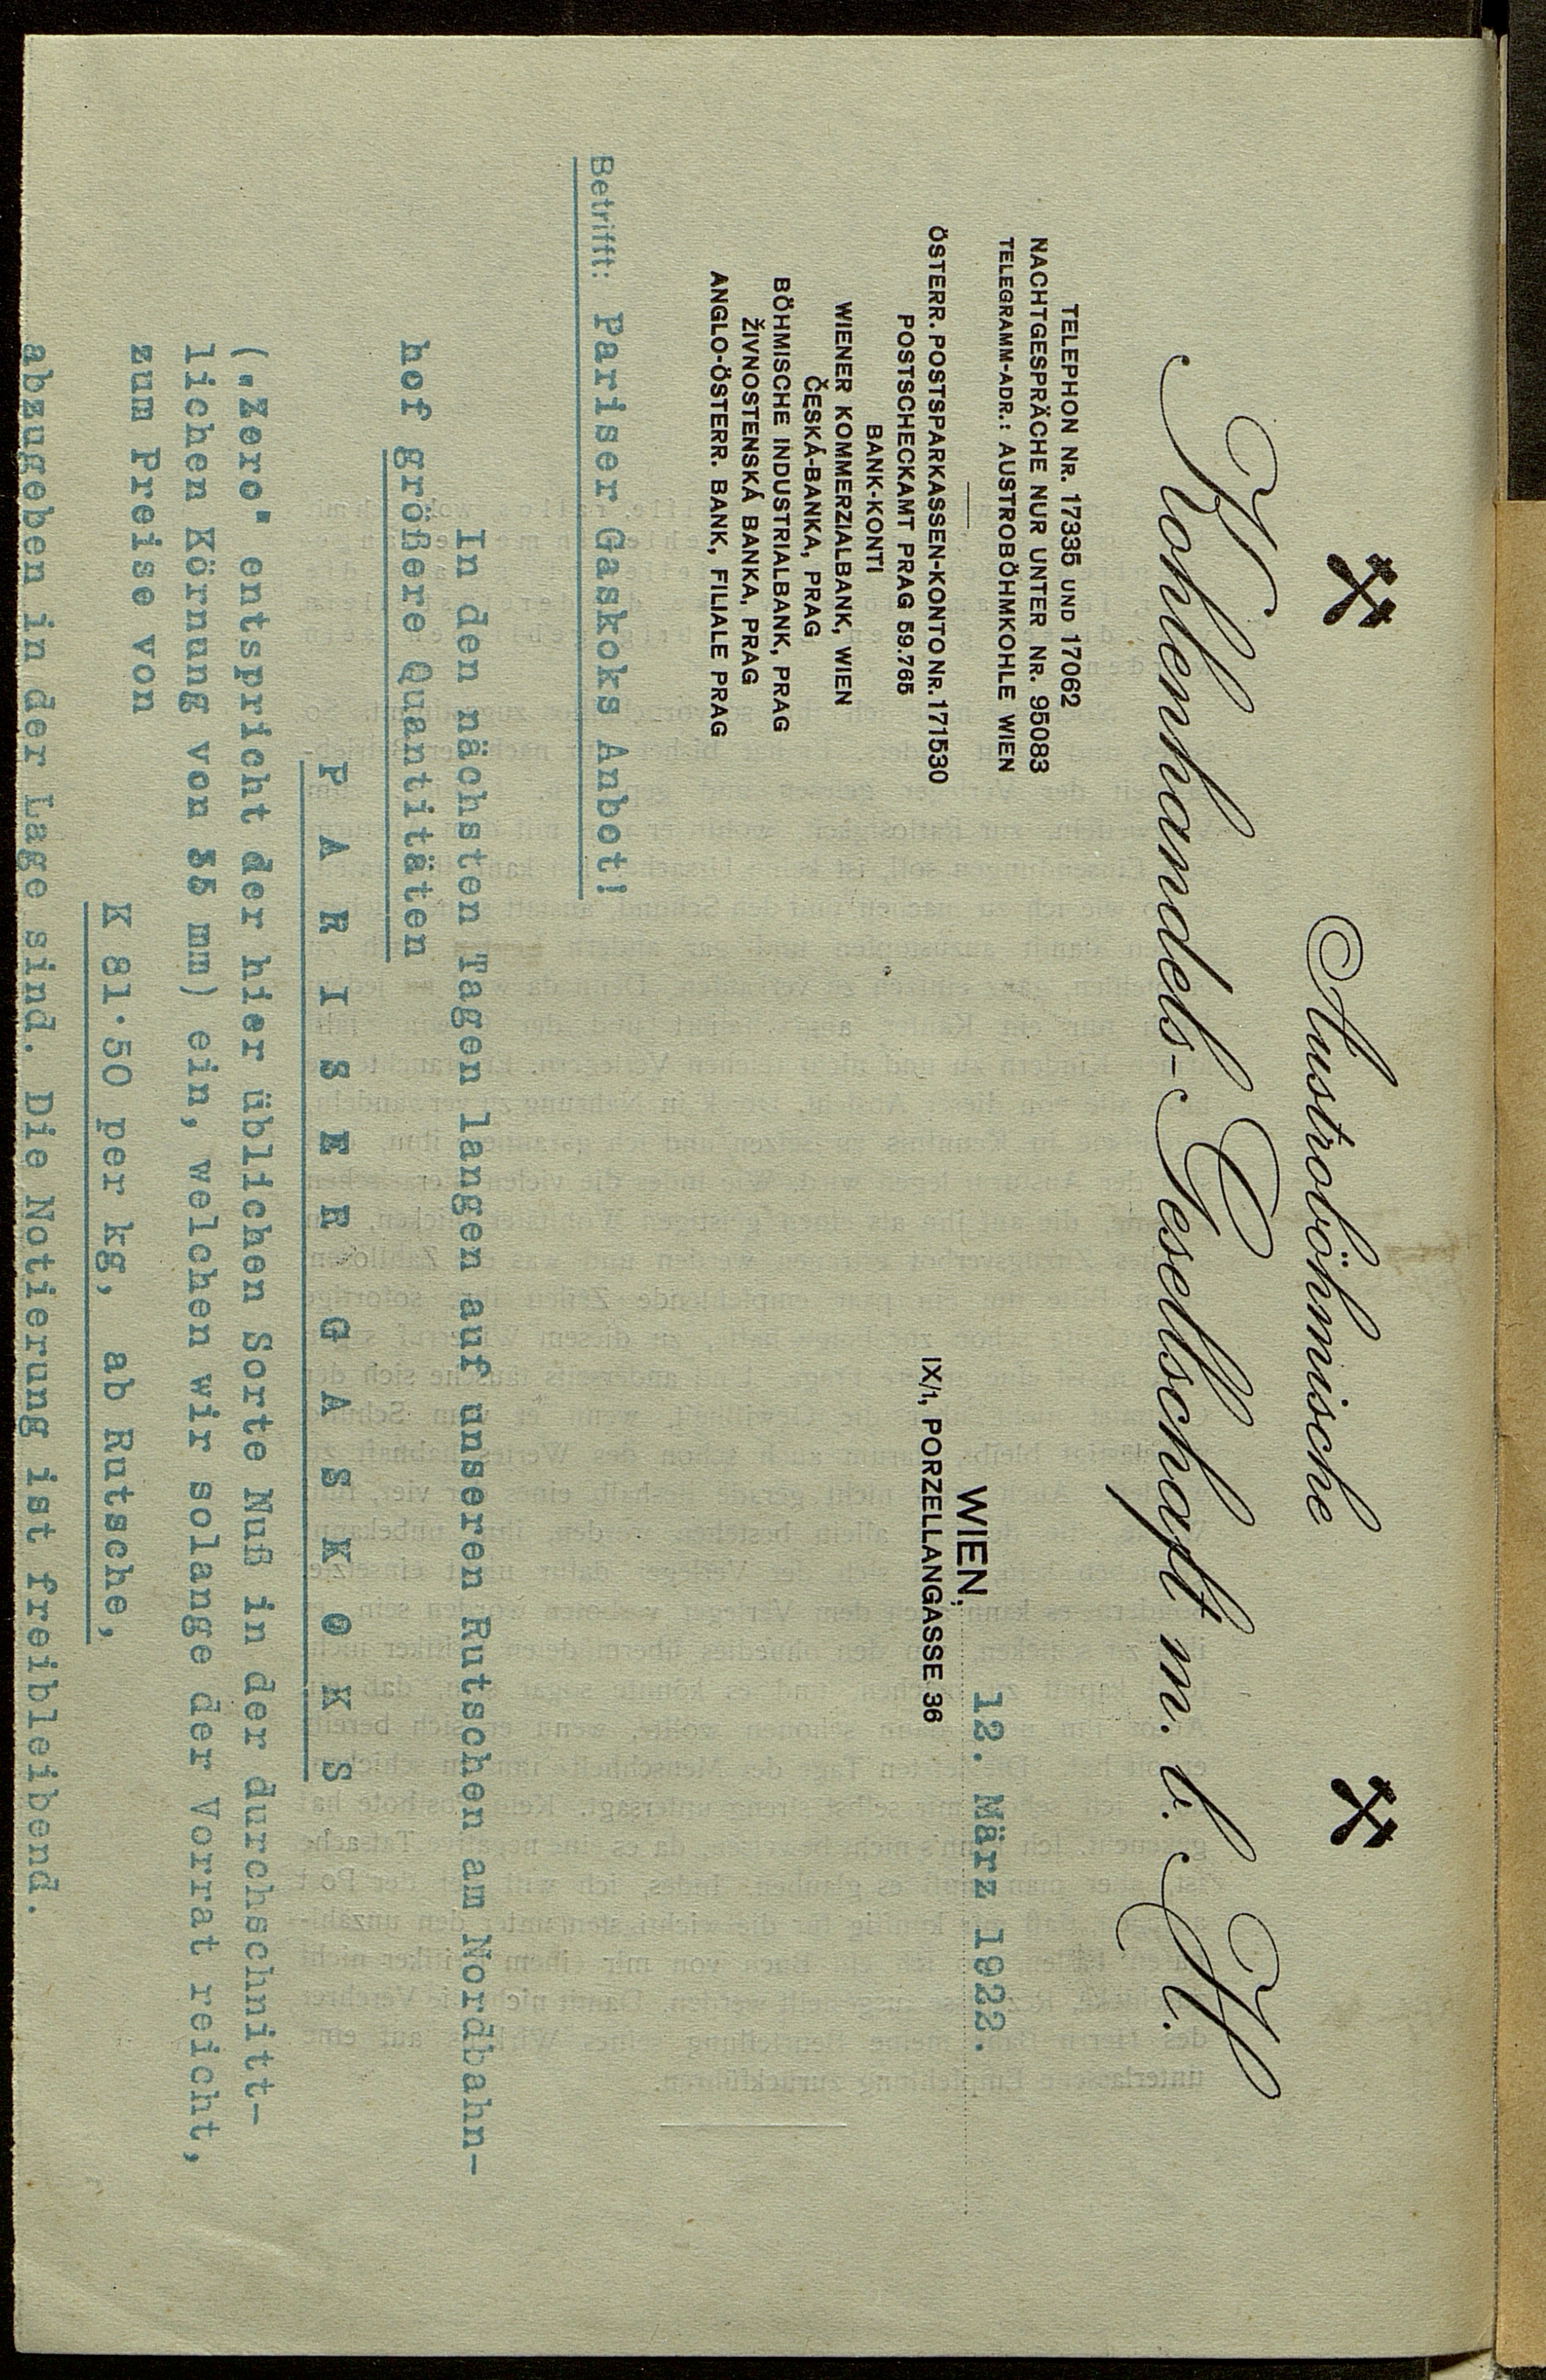 Austroböhmische
Kohlenhandels-Gesellschaft m. b. H.
TELEPHON NR. 17335 UND 17062
NACHTGESPRÄCHE NUR UNTER NR. 95083
TELEGRAMM-ADR.: AUSTROBÖHMKOHLE WIEN
ÖSTERR. POSTSPARKASSEN-KONTO NR. 171530
POSTSCHECKAMT PRAG 59.765
BANK-KONTI
WIENER KOMMERZIALBANK, WIEN
ČESKÁ-BANKA, PRAG
BÖHMISCHE INDUSTRIALBANK, PRAG
ŽIVNOSTENSKÁ BANKA, PRAG
ANGLO-ÖSTERR. BANK, FILIALE PRAG
WIEN, 12. März 1922.
IX/1, PORZELLANGASSE 36
Betrifft: Pariser Gaskoks Anbot!
In den nächsten Tagen langen auf unseren Rutschen am Nordbahn-
hof größere Quantitäten
P A R I S E R G A S K O K S
(„Zero" entspricht der hier üblichen Sorte Nuß in der durchschnitt-
lichen Körnung von 35 mm) ein, welchen wir solange der Vorrat reicht,
zum Preise von
K 81·50 per kg, ab Rutsche,
abzugeben in der Lage sind. Die Notierung ist freibleibend.